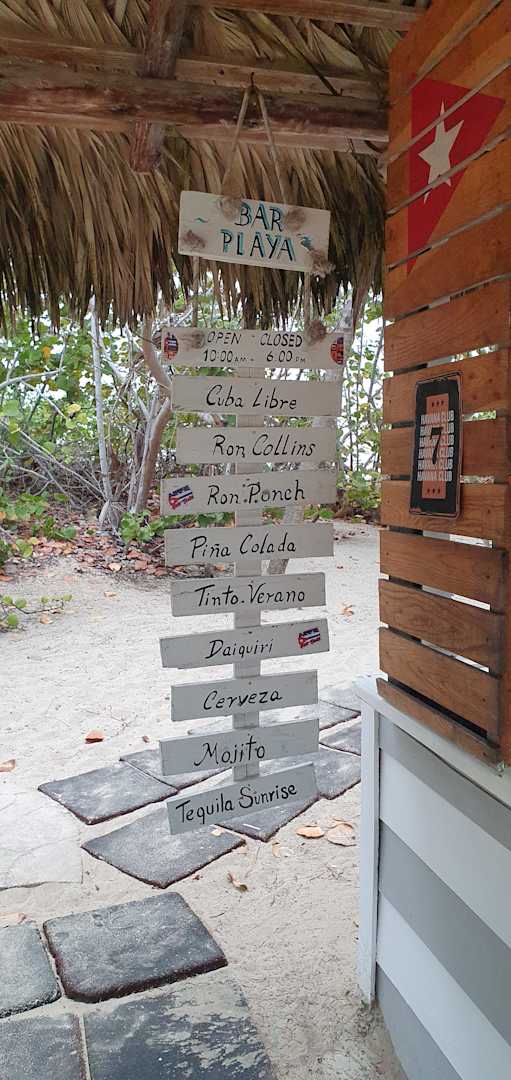 BAR
PLAYA
OPEN - CLOSED
10:00 AM - 6:00 PM
Cuba Libre
Ron Collins
Ron Ponch
Piña Colada
Tinto. Verano
Daiquiri
Cerveza
Mojito
Tequila Sunrise
HAVANA CLUB
HAVANA CLUB
HAVANA CLUB
HAVANA CLUB
HAVANA CLUB
7